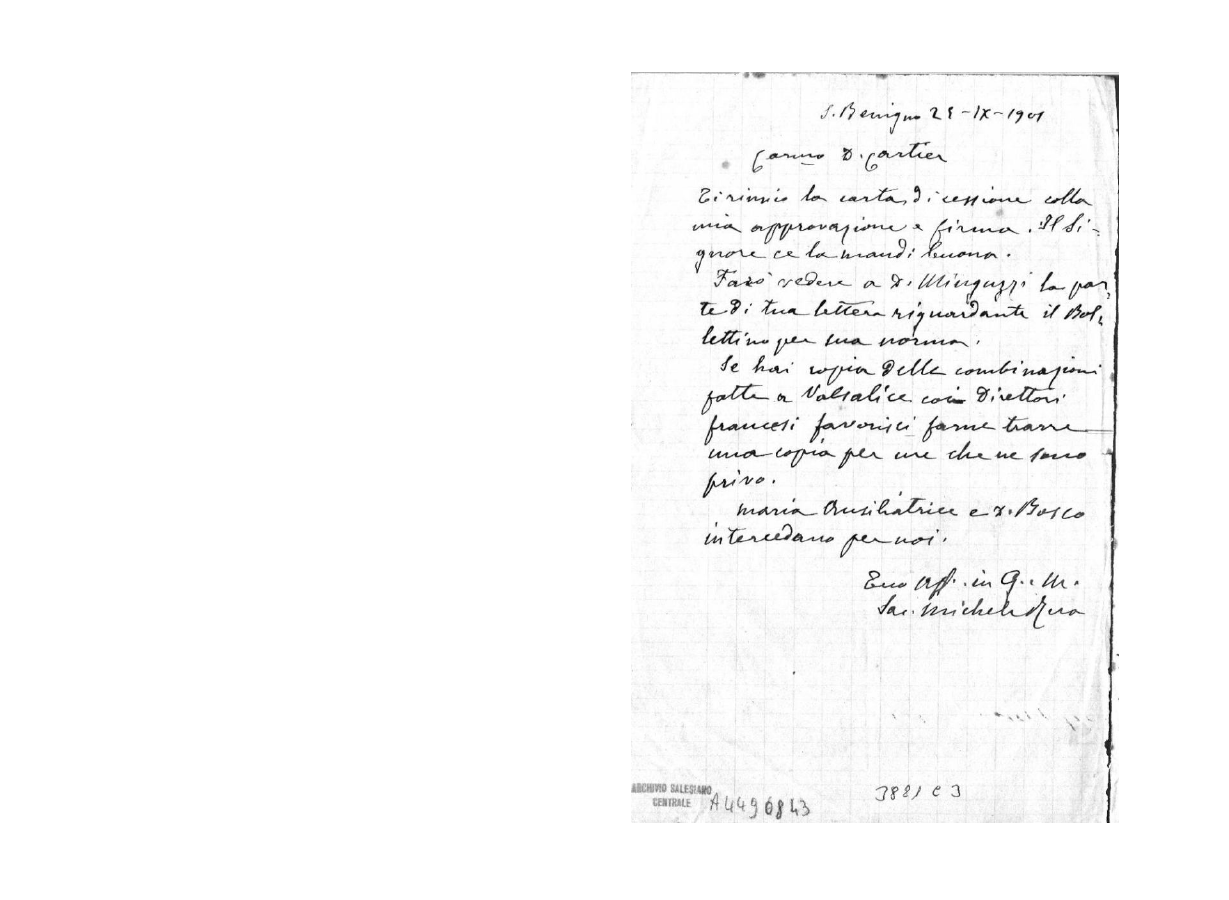 S. Benigno 25-IX-1901
Carmo D. Cartier
Ti rinvio la carta di cessione colla
mia approvazione e firma. Il Si-
gnore ce la mandi buona.
Farò vedere a D. Minguzzi la par-
te di tua lettera riguardante il Bol-
lettino per sua norma.
Se hai copia delle combinazioni
fatte a Valsalice coi Direttori
francesi favorisci farne trarre
una copia per me che ne sono
privo.
Maria Ausiliatrice e D. Bosco
intercedano per noi.
Tuo Aff. in G. e M.
Sac. Michele Rua
ARCHIVIO SALESIANO
CENTRALE
A4496843
3881 C 3